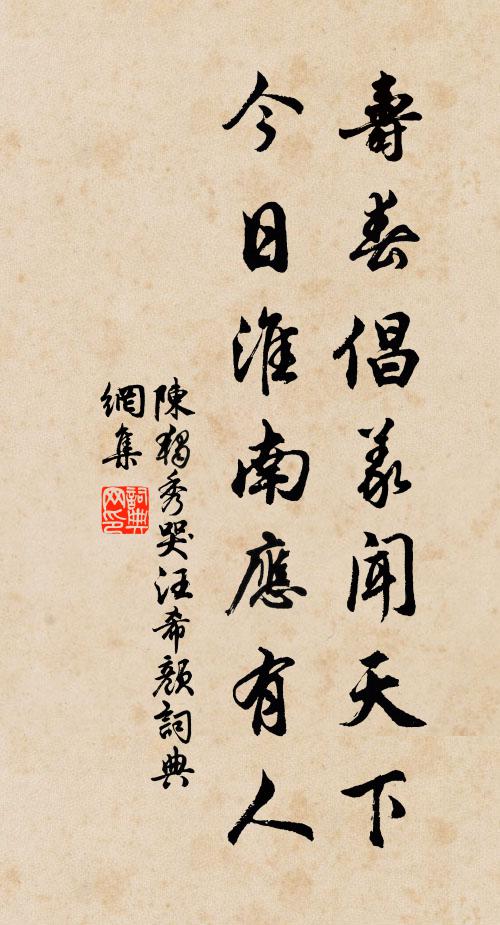 壽春倡義聞天下
今日淮南應有人
陳獨秀哭汪希顏詞典
網集
詞典
网印